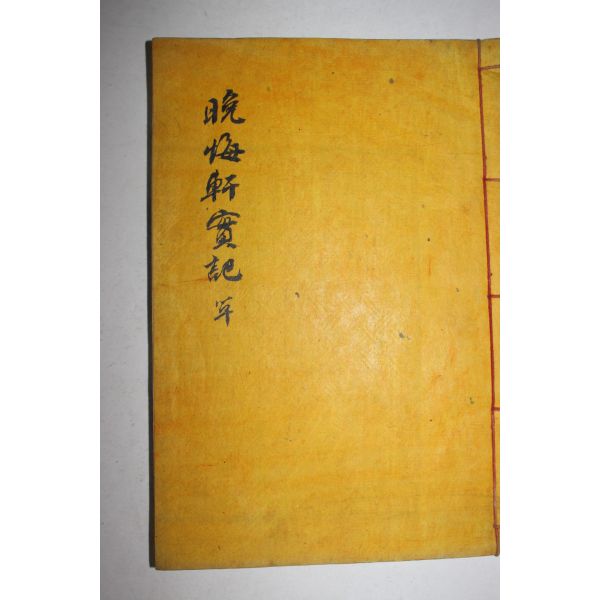 晩悔軒實記 単